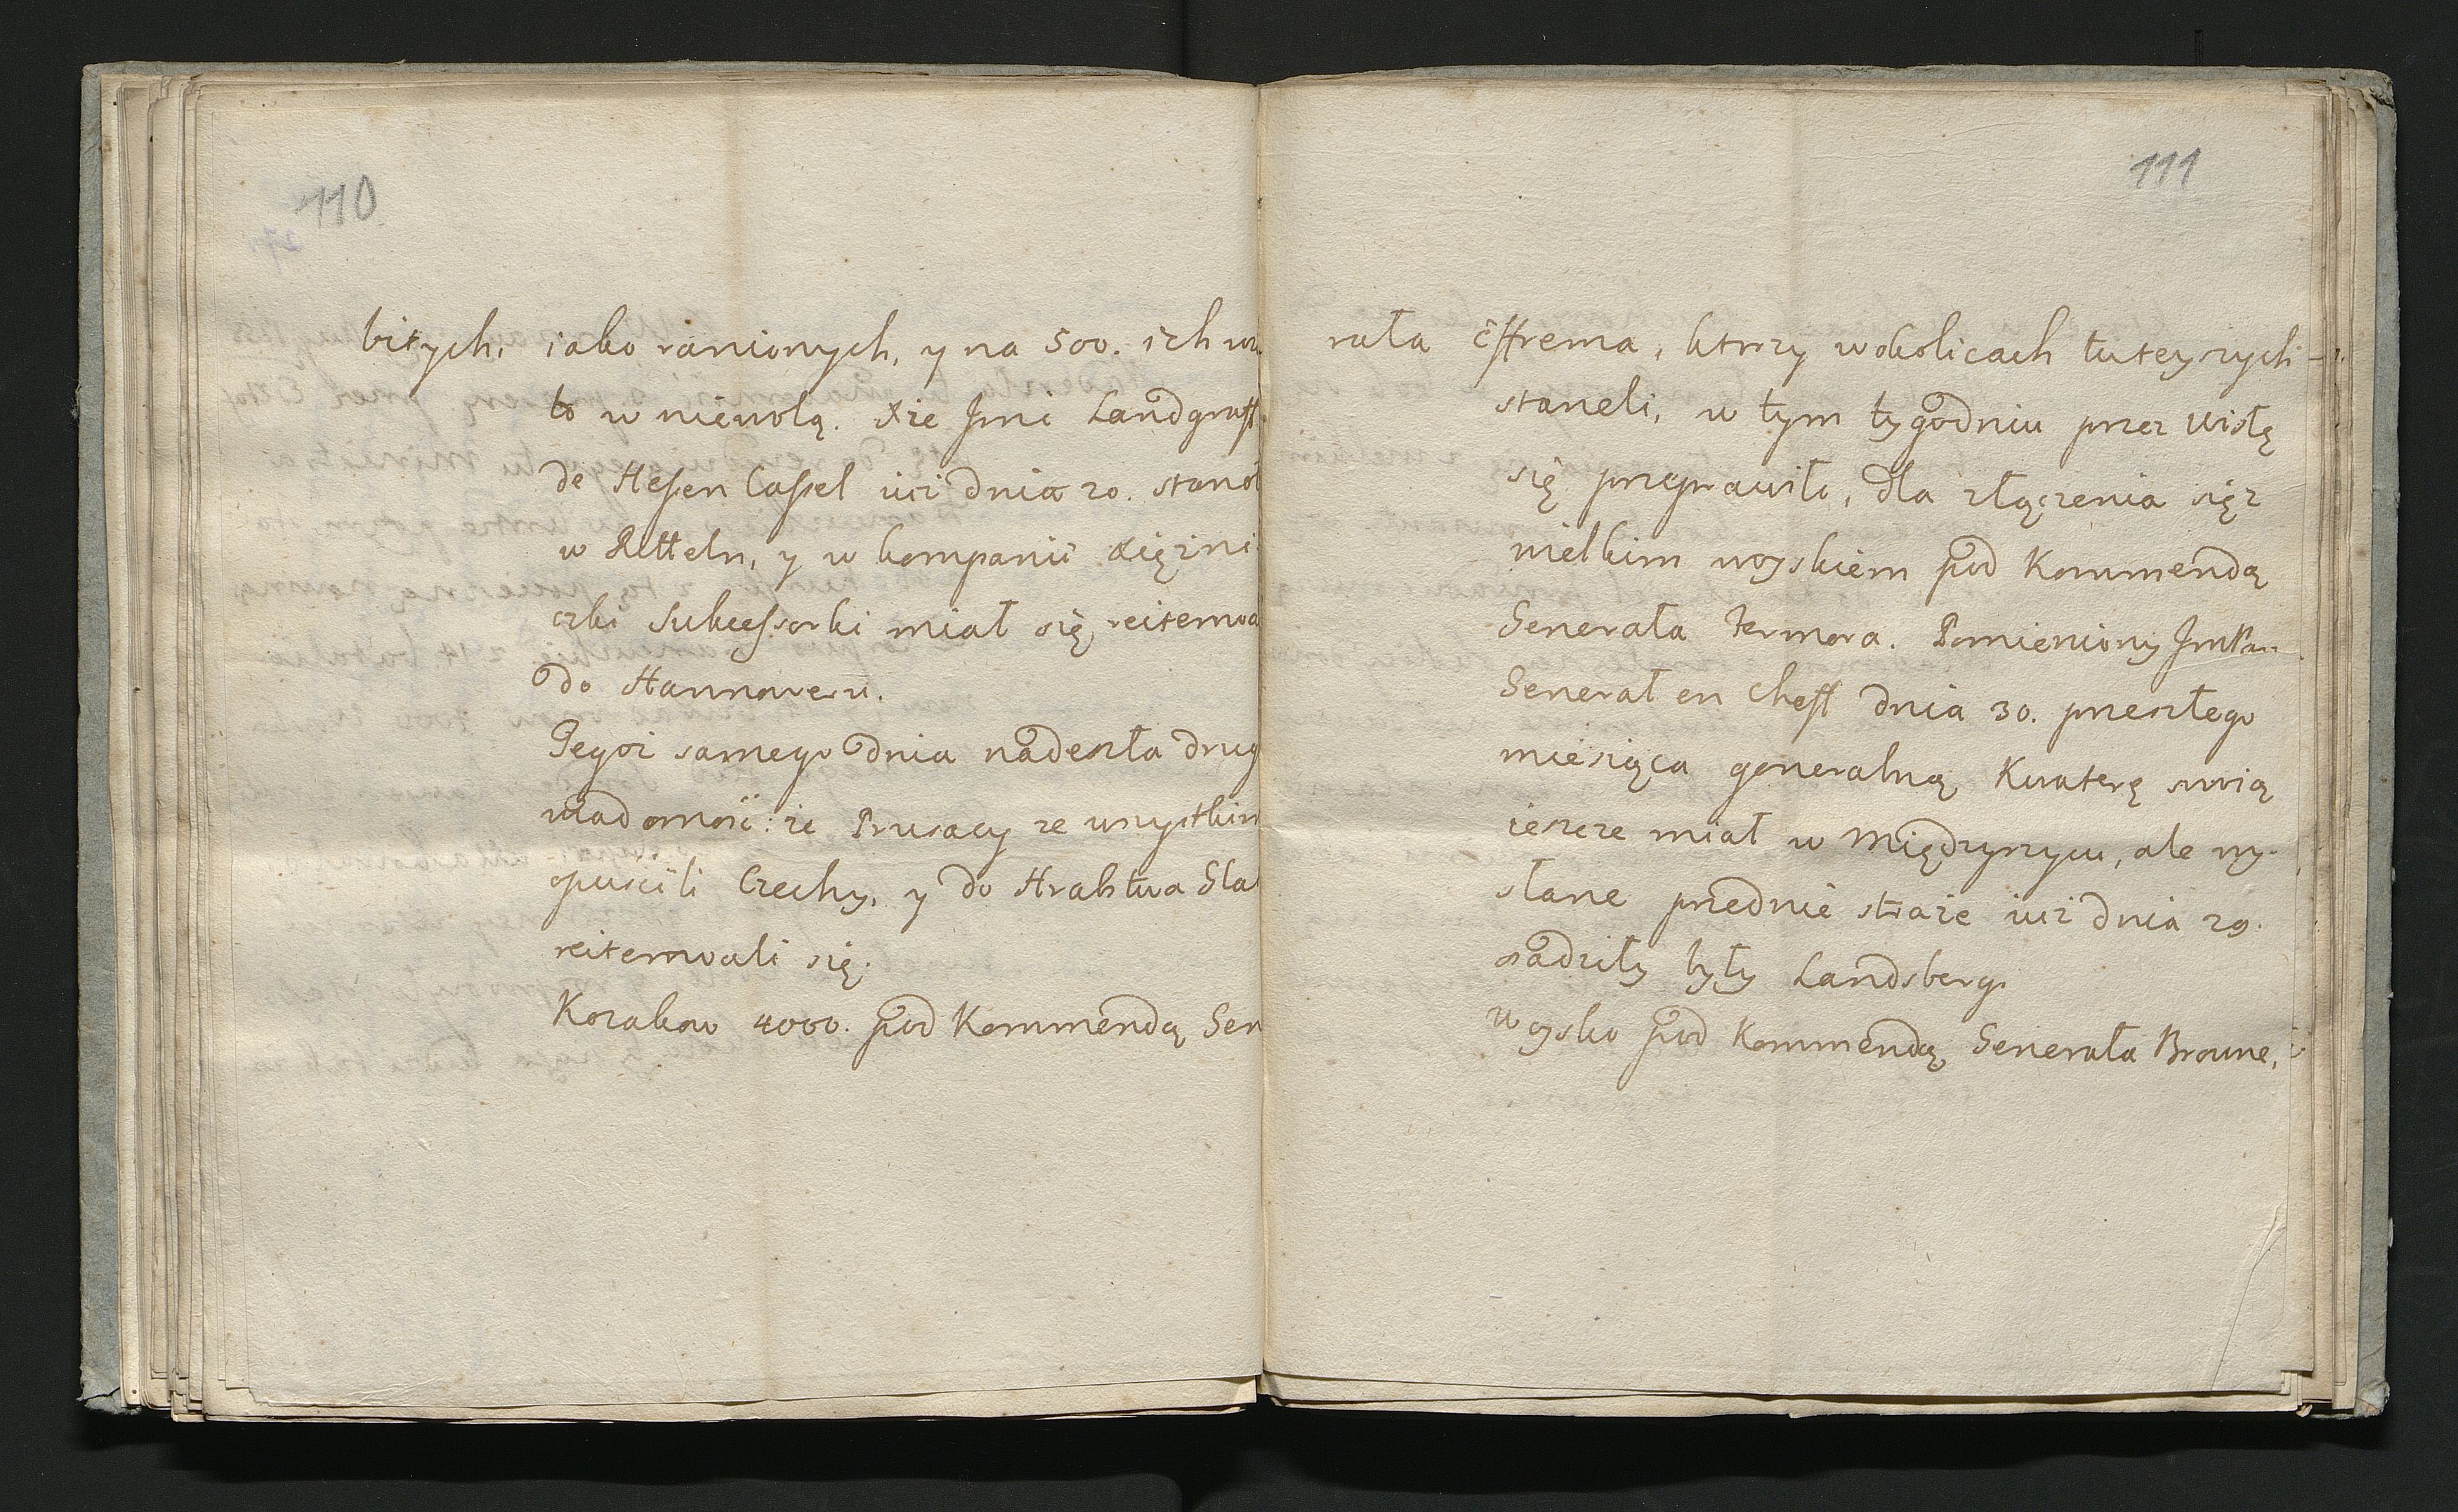 110
bitych, iako ranionych, y na 500. ich
to w niewolą. Xże Jmć Landgraff
de Hessen Cassel iuż dnia 20. stanoł
w Rtteln, y w kompanii xiężni
czki Sukcessorki miał się reiterowa
do Hannoweru.
Tegoż samego dnia nadeszła drug
wiadomość: że Prusacy ze wszystkim
opuścili Czechy, y do Hrabstwa Gla
reiterowali się.
Kozakow 4000. pod Kommendą Gen
111
rała Essrema, ktorzy w okolicach tuteyszych
staneli, w tym tygodniu przez Wisłę
się przeprawiło, dla złączenia się z
wielkim woyskiem pod Kommendą
Generała Fermora. Pomieniony JmPan
Generał en Cheff dnia 30. przeszłego
miesiąca generalną Kwaterę swoią
ieszcze miał w Międzyrzycu, ale wy-
słane przednie straże iuż dnia 29.
osadziły były Landsberg.
Woysko pod Kommendą Generała Browne,